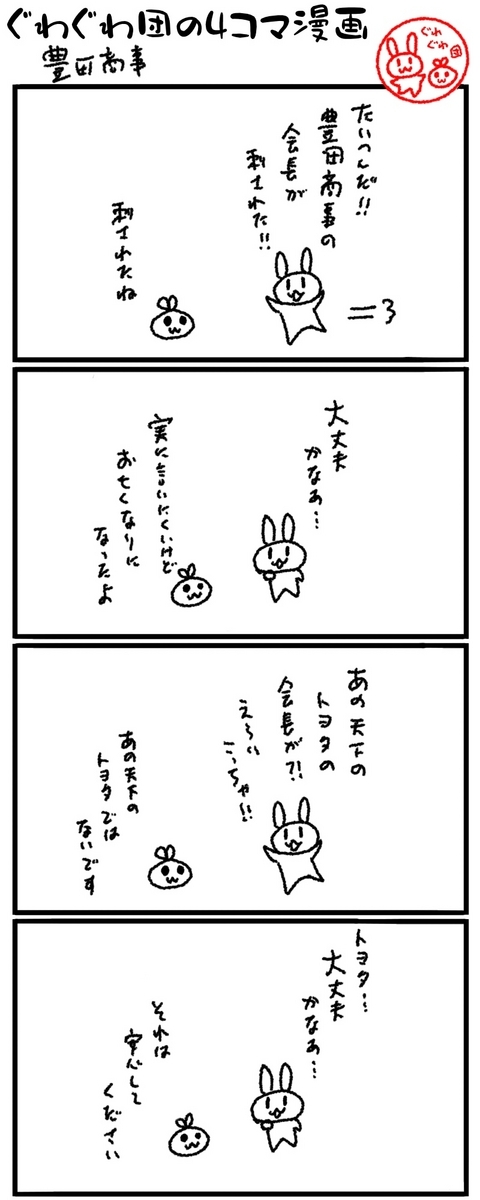 ぐわぐわ団の4コマ漫画
豊田商事
ぐわ
ぐわ
団
たいへんだ!!
豊田商事の
会長が
刺された!!
刺されたね
大丈夫
かなあ…
実に言いにくいけど
お亡くなりに
なったよ
あの天下の
トヨタの
会長が?!
えらい
こっちゃ!!
あの天下の
トヨタでは
ないです
トヨタ…
大丈夫
かなあ…
それは
安心して
ください